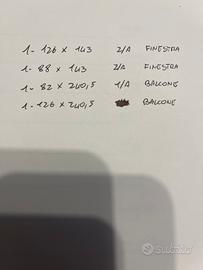 1- 126 x 143 2/A FINESTRA
1- 88 x 143 2/A FINESTRA
1- 82 x 240,5 1/A BALCONE
1- 126 x 240,5 BALCONE
Subito